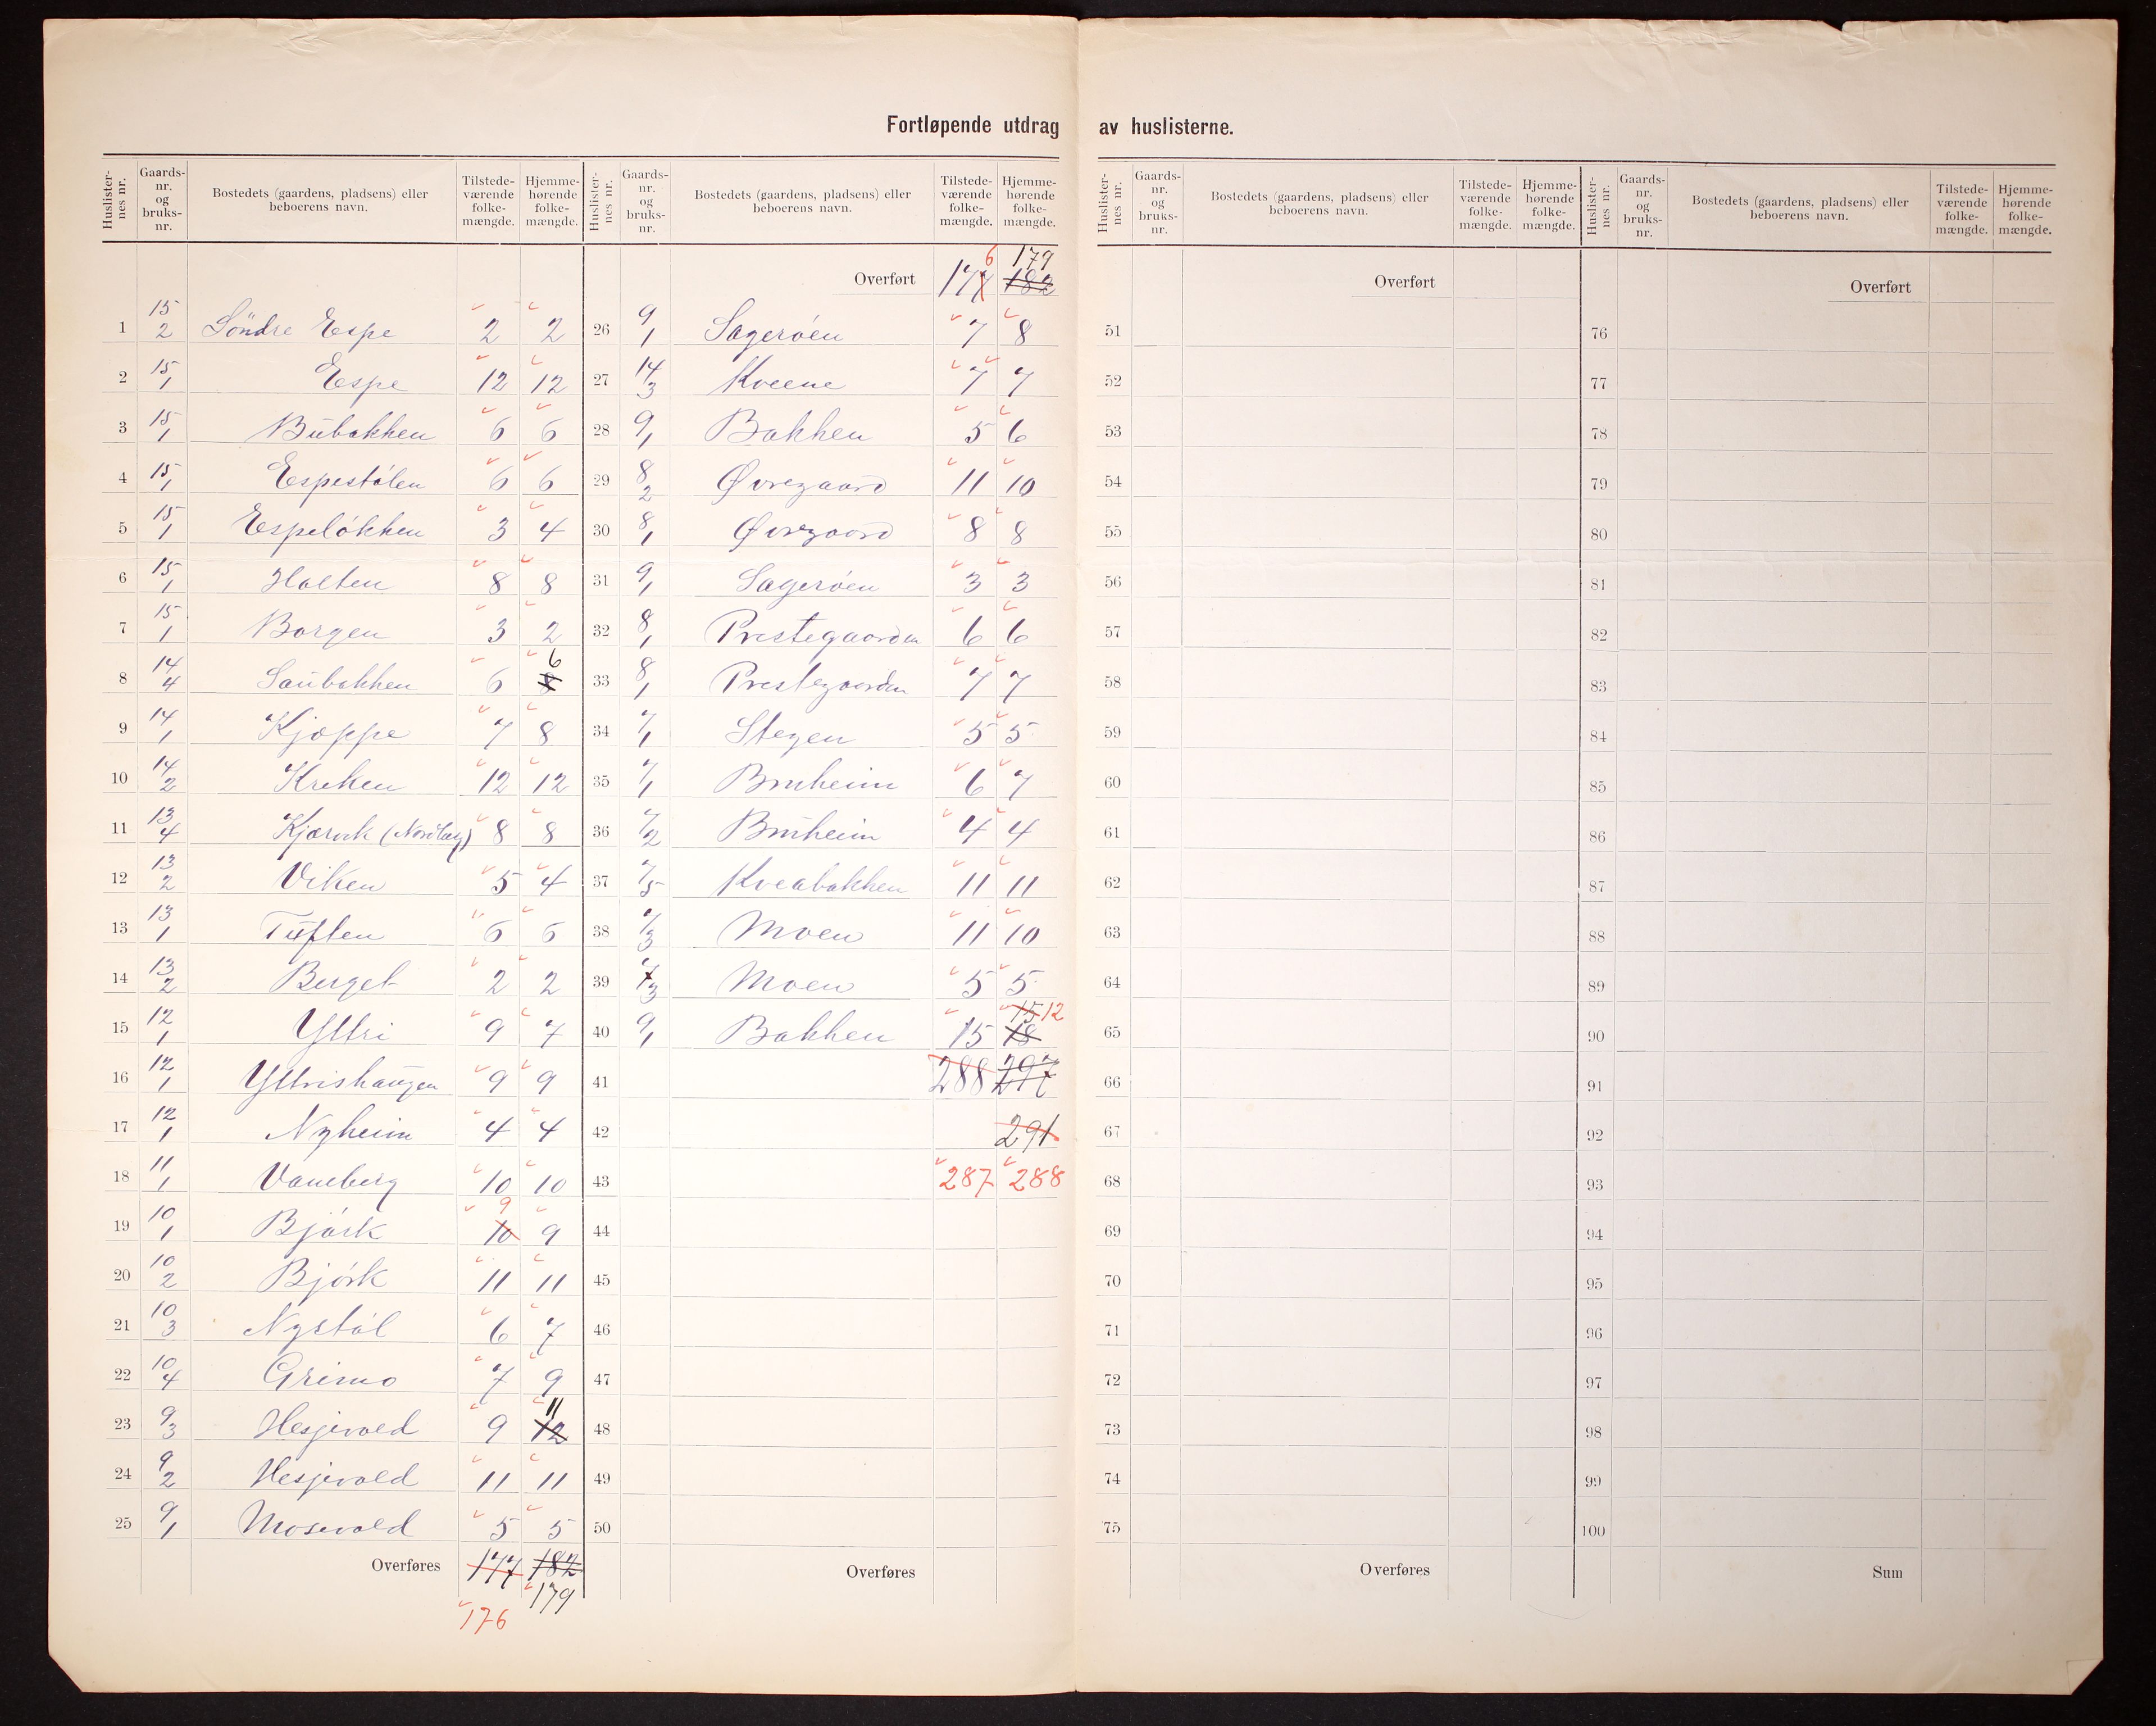 Fortløpende utdrag av huslisterne.
Huslister-nes nr. Gaards-nr. og bruks-nr. Bostedets (gaardens, pladsens) eller beboerens navn. Tilstede-værende folke-mængde. Hjemme-hørende folke-mængde.
1 15/2 Söndre Espe 2 2
2 15/1 Espe 12 12
3 15/1 Bübakken 6 6
4 15/1 Espestölen 6 6
5 15/1 Espelökken 3 4
6 15/1 Holten 8 8
7 15/1 Borgen 3 2
8 14/4 Saübakken 6 8 6
9 14/1 Kjoppe 7 8
10 14/2 Kreken 12 12
11 13/4 Kjørvik 8 8
12 13/2 Viken 5 4
13 13/1 Tüften 6 6
14 13/2 Berget 2 2
15 12/1 Yttri 9 7
16 12/1 Yttrishaugen 9 9
17 12/1 Nyheim 4 4
18 11/1 Vaneberg 10 10
19 10/1 Björk 10 9 9
20 10/2 Björk 11 11
21 10/3 Nystöl 6 7
22 10/4 Grimo 7 9
23 9/3 Hesjevold 9 12 11
24 9/2 Hesjevold 11 11
25 9/1 Mosevold 5 5
Overføres 177 182
179
176
Huslister-nes nr. Gaards-nr. og bruks-nr. Bostedets (gaardens, pladsens) eller beboerens navn. Tilstede-værende folke-mængde. Hjemme-hørende folke-mængde.
6 179
Overført 177 182
26 9/1 Sageröen 7 8
27 14/3 Kveene 7 7
28 9/1 Bakken 5 6
29 8/2 Øvregaard 11 10
30 8/1 Øvregaard 8 8
31 9/1 Sageröen 3 3
32 8/1 Prestegaarden 6 6
33 8/1 Prestegaarden 7 7
34 7/1 Stegen 5 5
35 7/1 Bruheim 6 7
36 7/2 Brüheim 4 4
37 7/5 Kveabakken 11 11
38 7/3 Moen 11 10
39 7/3 Moen 5 5
15 12
40 9/1 Bakken 15 18
41 288 297
42 291
43 287 288
44
45
46
47
48
49
50
Overføres
Huslister-nes nr. Gaards-nr. og bruks-nr. Bostedets (gaardens, pladsens) eller beboerens navn. Tilstede-værende folke-mængde. Hjemme-hørende folke-mængde.
Overført
51
52
53
54
55
56
57
58
59
60
61
62
63
64
65
66
67
68
69
70
71
72
73
74
75
Overføres
Huslister-nes nr. Gaards-nr. og bruks-nr. Bostedets (gaardens, pladsens) eller beboerens navn. Tilstede-værende folke-mængde. Hjemme-hørende folke-mængde.
Overført
76
77
78
79
80
81
82
83
84
85
86
87
88
89
90
91
92
93
94
95
96
97
98
99
100
Sum